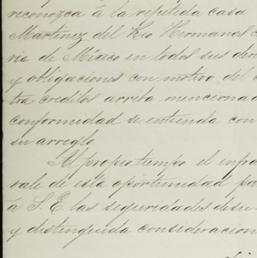 reconozca á la repetida casa
Martinez del Rio Hermanos
ria de México en todos sus der
y obligaciones con motivo del
tra creditos arriba mencionad
conformidad se entienda con
su arreglo
Al propio tiempo el infra
vale de esta oportunidad pa
á S. E. las seguridades de su
y distinguida consideracion